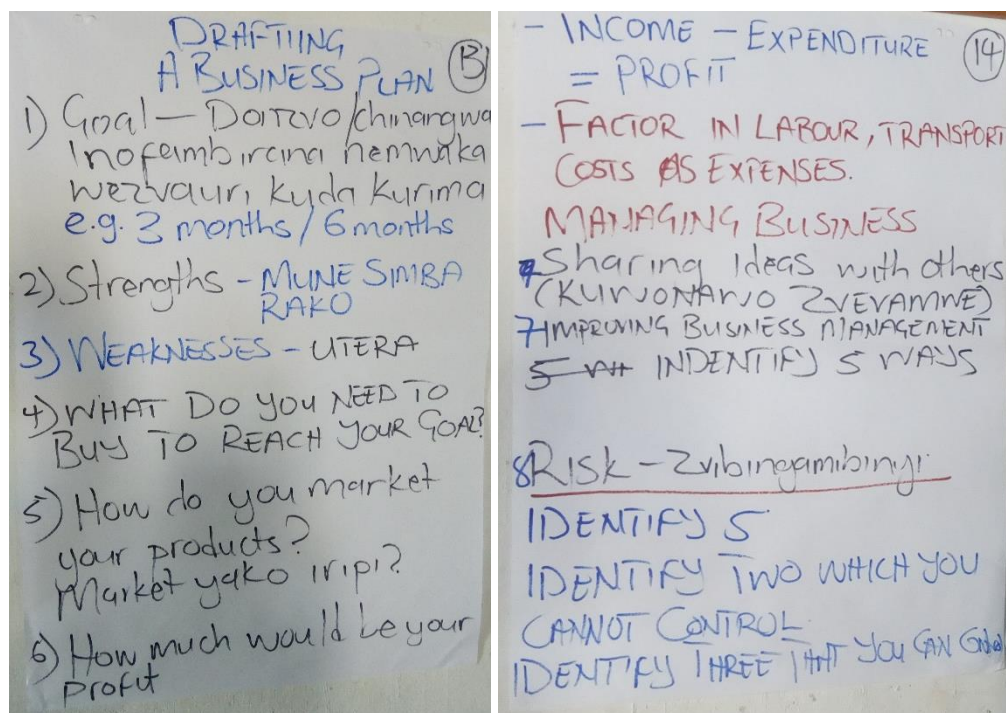 DRAFTIING
A BUSINESS PLAN
13
1) Goal - Donzvo/chinangwa
Inofambirana nemwaka
wezvauri kuda kurima
e.g. 3 months / 6 months
2) Strengths - MUNE SIMBA
RAKO
3) WEAKNESSES - UTERA
4) WHAT DO YOU NEED TO
BUY TO REACH YOUR GOAL?
5) How do you market
your products?
Market yako iripi?
6) How much would be your
profit
- INCOME - EXPENDITURE
= PROFIT
14
- FACTOR IN LABOUR, TRANSPORT
COSTS AS EXPENSES.
MANAGING BUSINESS
Sharing Ideas with others
(KUWONANO ZVEVAMWE)
7) IMPROVING BUSINESS MANAGEMENT
INDENTIFY 5 WAYS
8 RISK - Zvibingamibinyi
IDENTIFY 5
IDENTIFY TWO WHICH YOU
CANNOT CONTROL
IDENTIFY THREE THAT YOU CAN Control